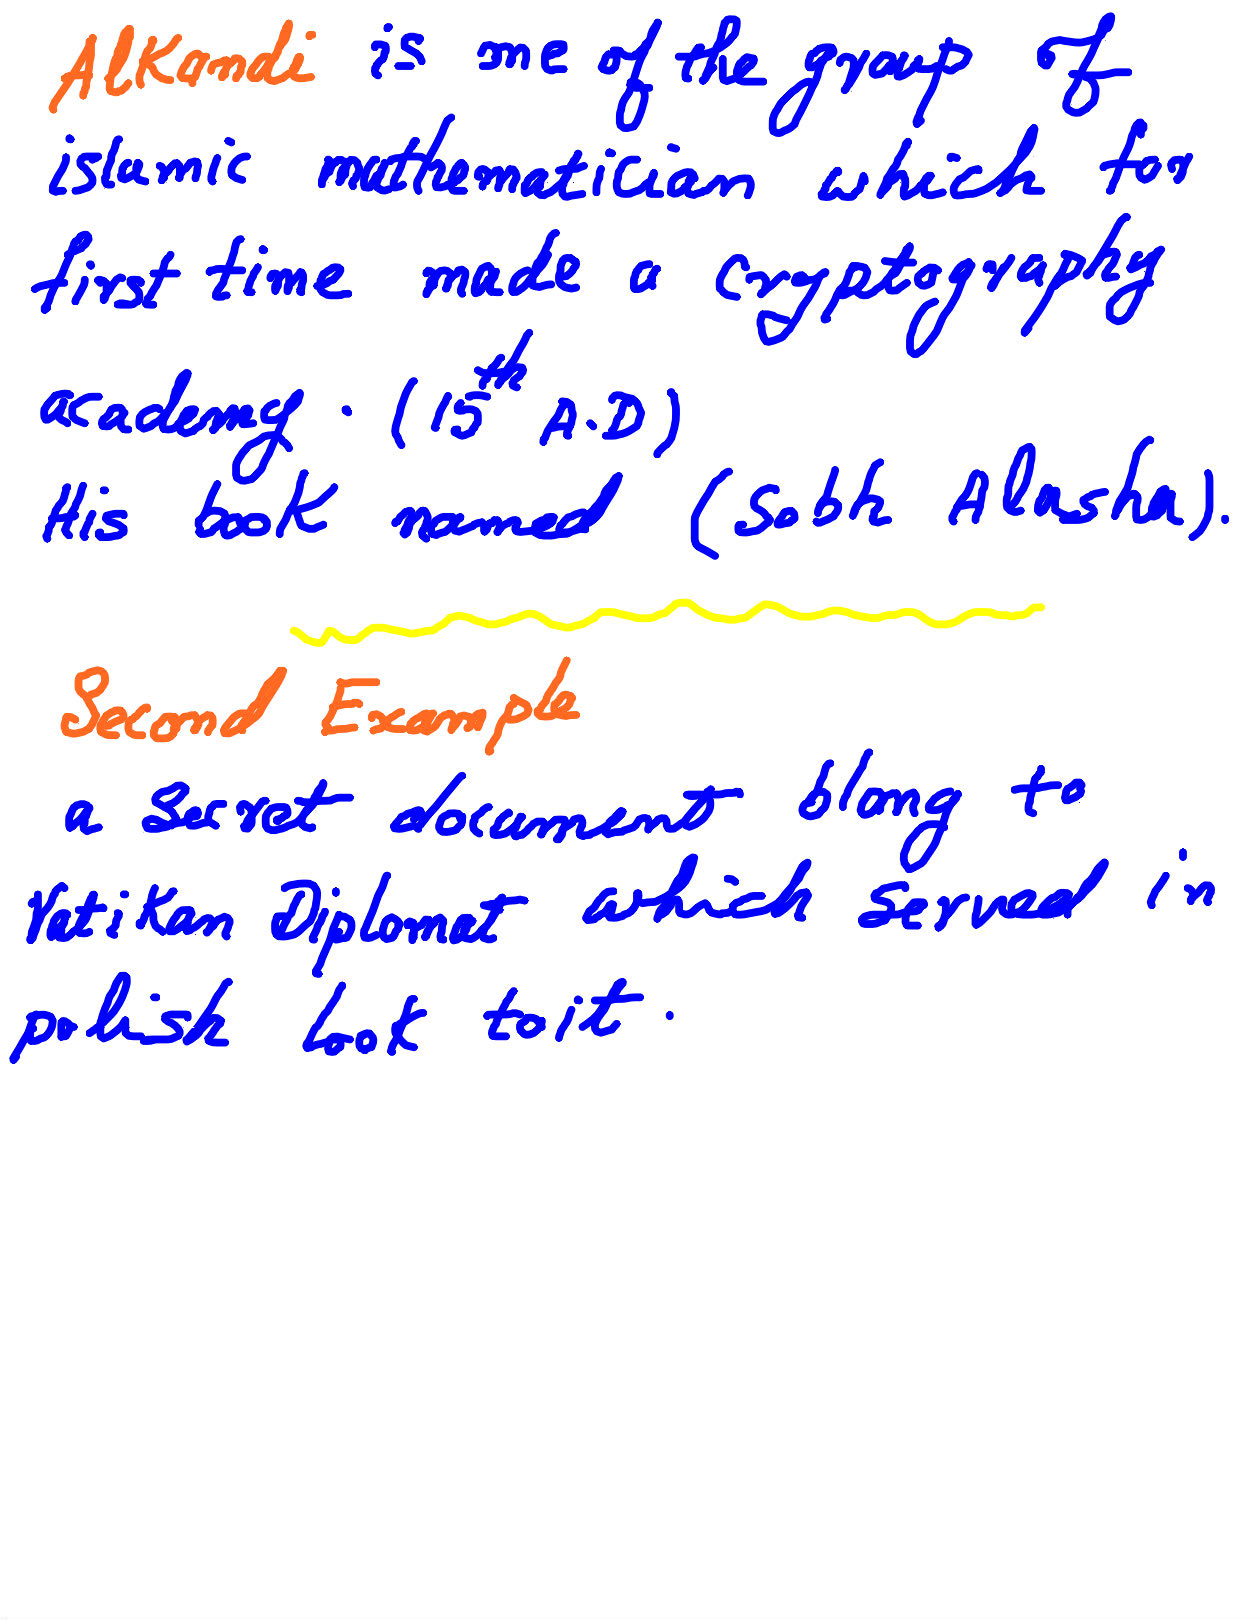 Alkandi is one of the group of
islamic mathematician which for
first time made a cryptography
academy. (15th A.D)
His book named (Sobh Alasha).
Second Example
a Secret document blong to
Vatikan Diplomat which served in
polish look to it.